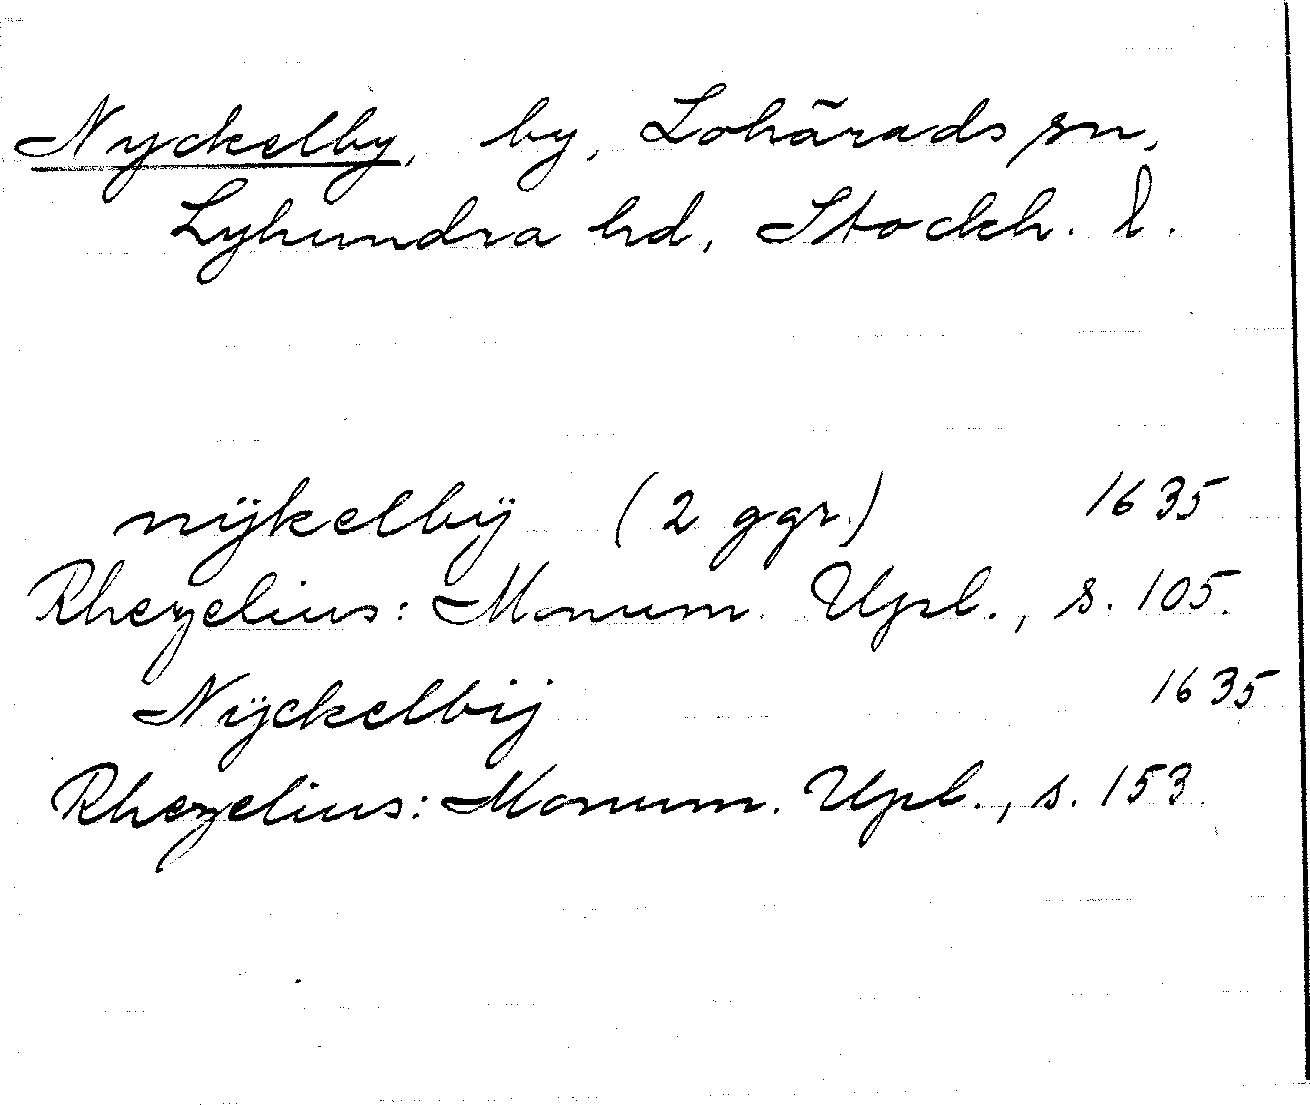 Nyckelby, by, Lohärads sn,
Lyhundra hd, Stockh. l.
nÿkelbÿ (2 ggr.) 1635
Rhezelius: Monum. Upl., s. 105.
Nÿckelbij 1635
Rhezelius: Monum. Upl., s. 153